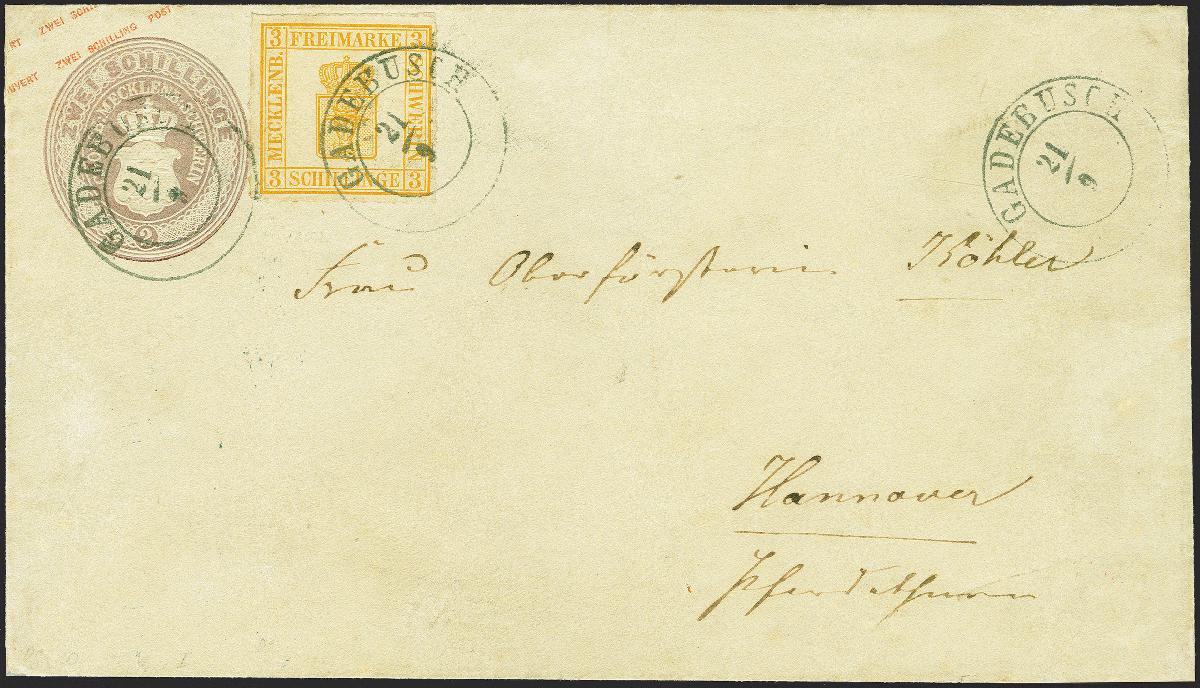 ZWEI SCHILLING
ZWEI SCHILLING POST
ZWEI SCHILLINGE
MECKLENB. SCHWERIN
2
GADEBUSCH
21/9
3 FREIMARKE 3
MECKLENB.
SCHWERIN
3 SCHILLINGE 3
GADEBUSCH
21/9
GADEBUSCH
21/9
Frau Oberförsterin Köhler
Hannover
Pferdethurm